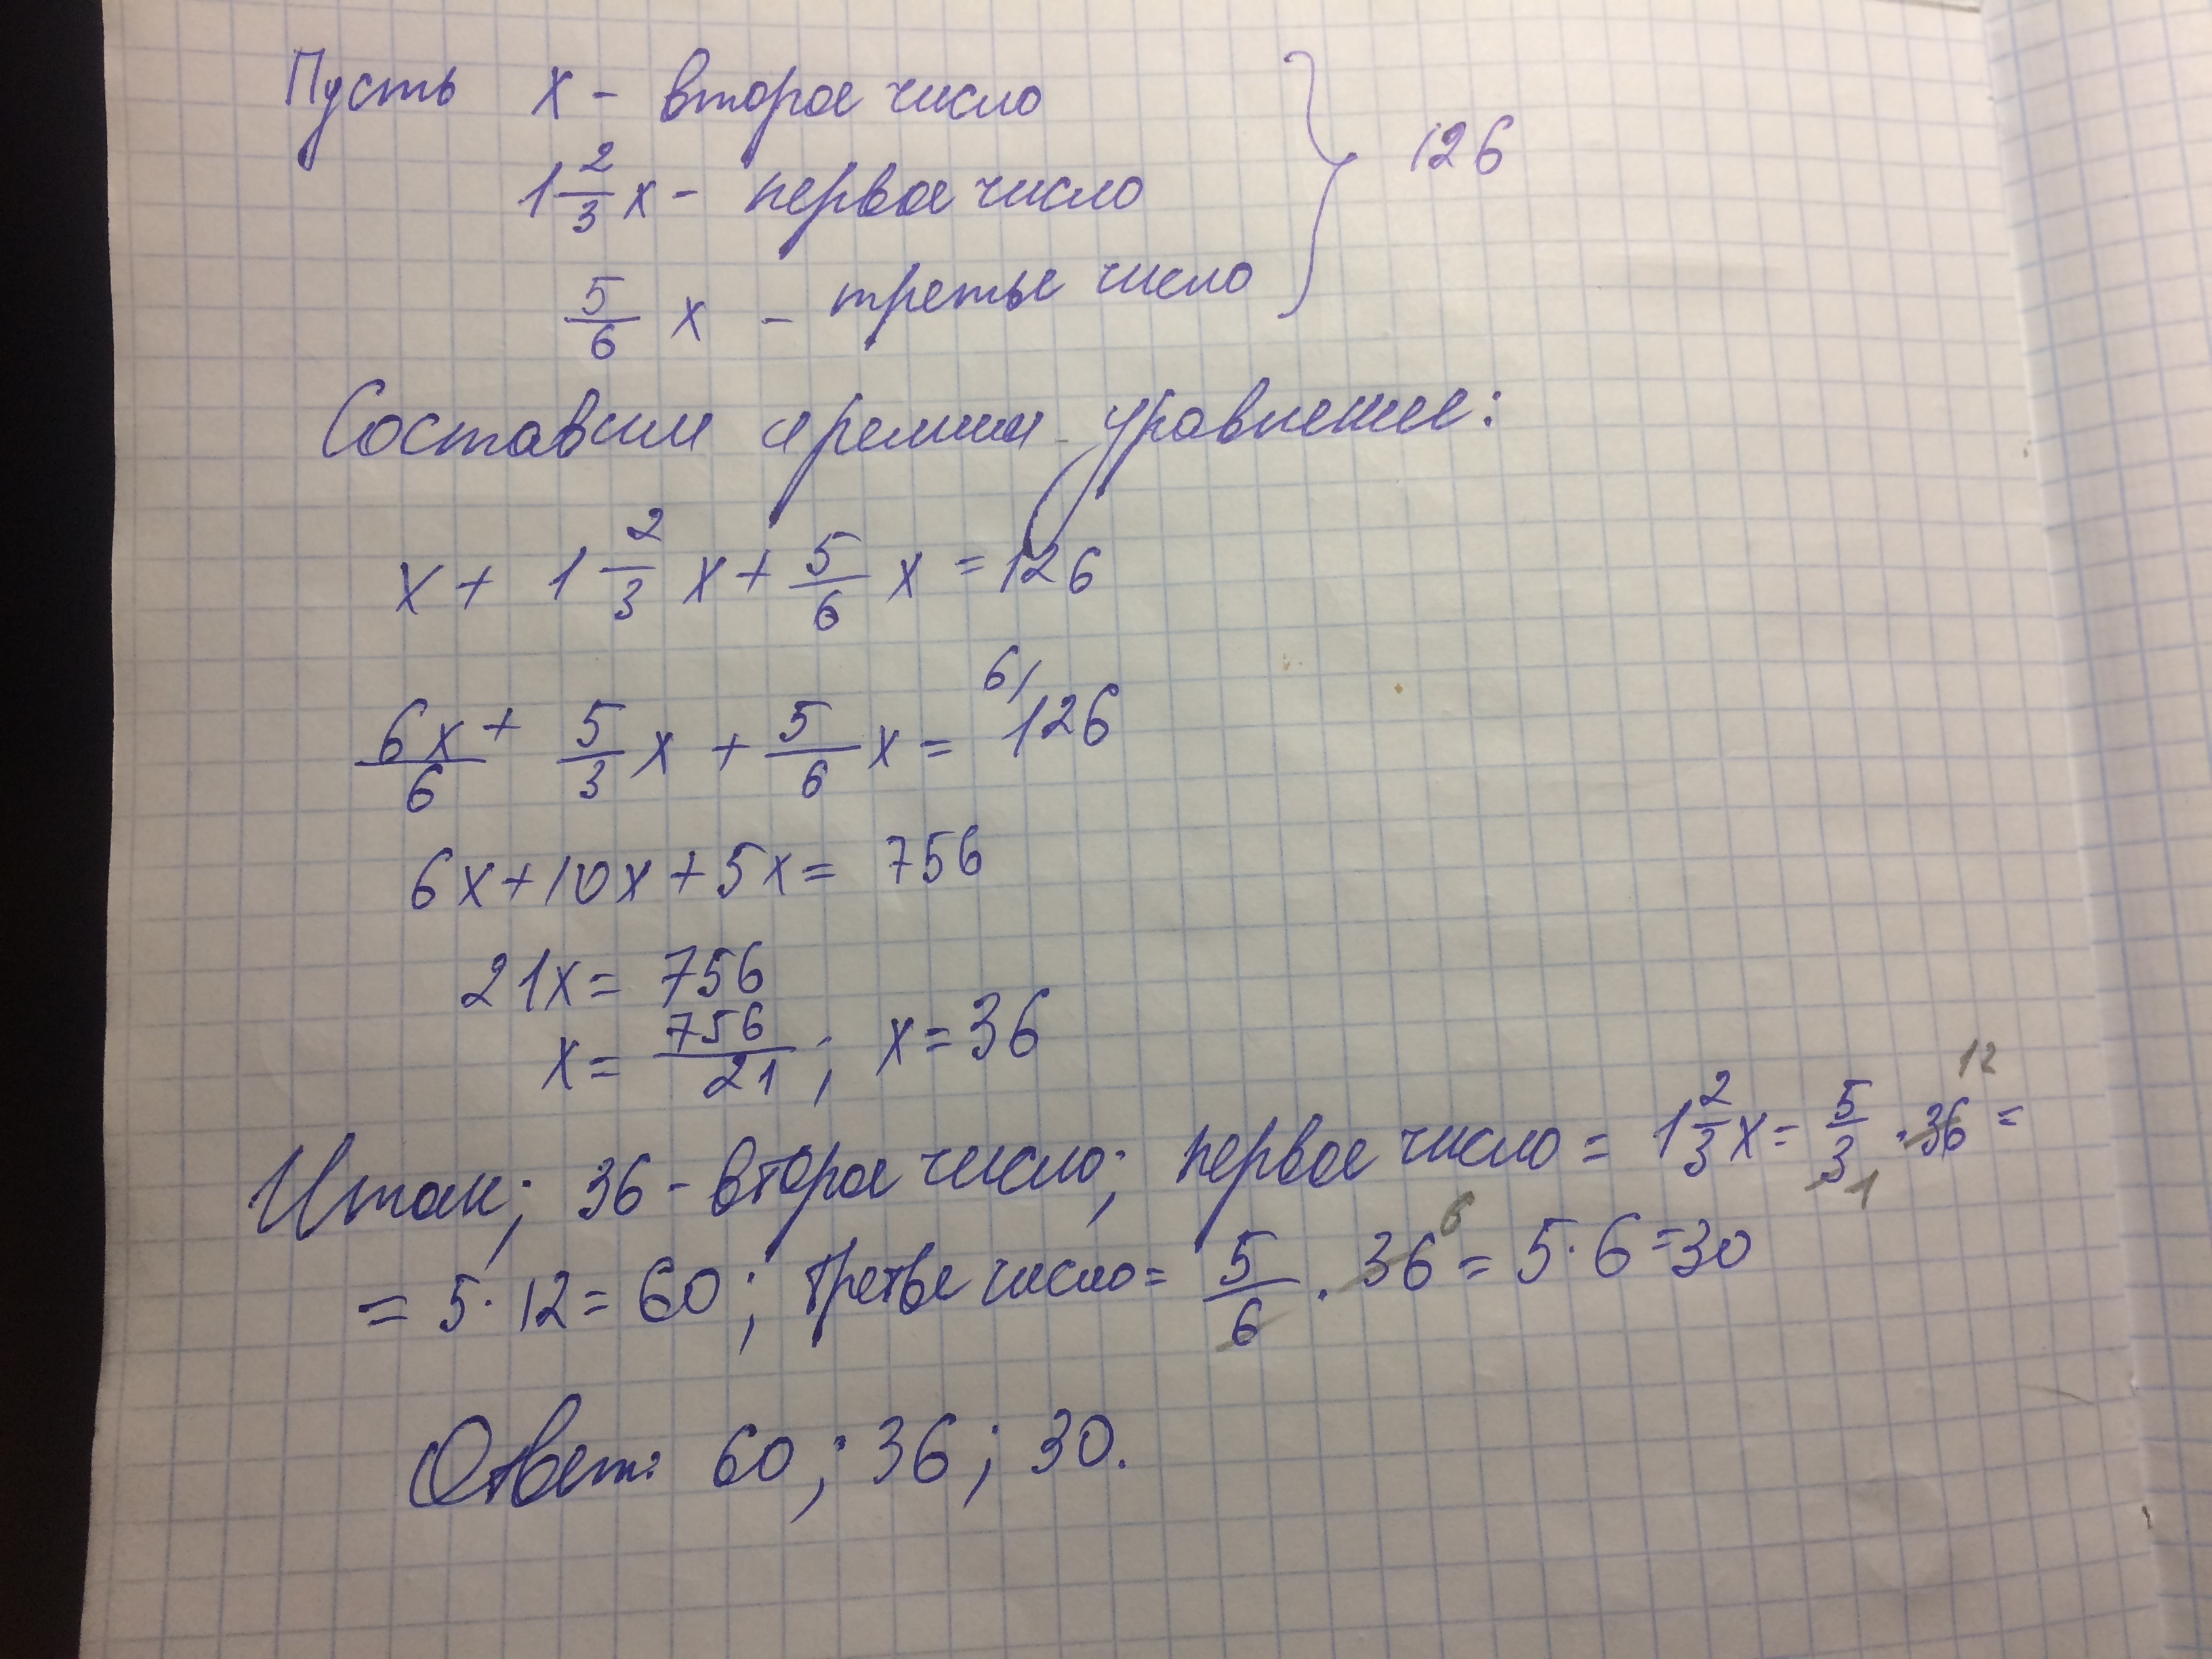 Пусть x - второе число
1 2/3 x - первое число } 126
5/6 x - третье число
Составим и решим уравнение:
x + 1 2/3 x + 5/6 x = 126
6x/6 + 5/3 x + 5/6 x = 6/ 126
6x + 10x + 5x = 756
21x = 756
x = 756/21 ; x = 36
Итак; 36 - второе число; первое число = 1 2/3 x = 5/3 1 · 36 12 =
= 5 · 12 = 60 ; третье число = 5/6 · 36 6 = 5 · 6 = 30
Ответ: 60 ; 36 ; 30.